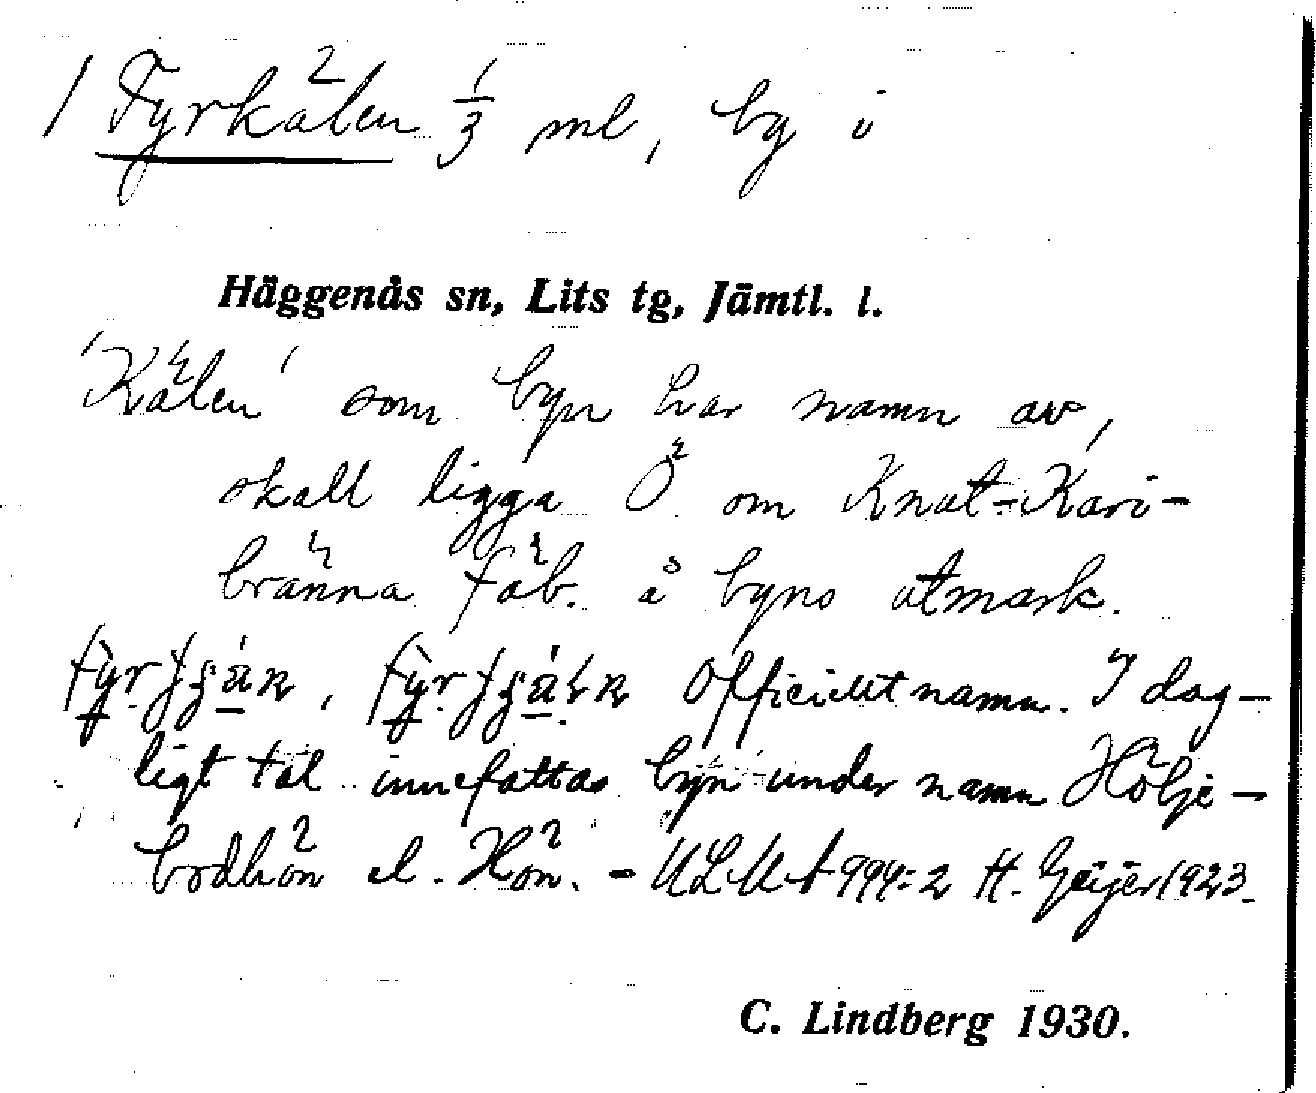 / Fyrkälen 1/3 ml, by i
Häggenås sn, Lits tg, Jämtl. l.
'Kälen' som byn har namn av,
skall ligga Ö om Knut-Kari-
bränna fäb. å byns utmark.
Officiellt namn. I dag-
ligt tal innefattas byn under namn Hölje-
bodhön el. Hön. - ULMA 994:2 H. Geijer 1923.
C. Lindberg 1930.